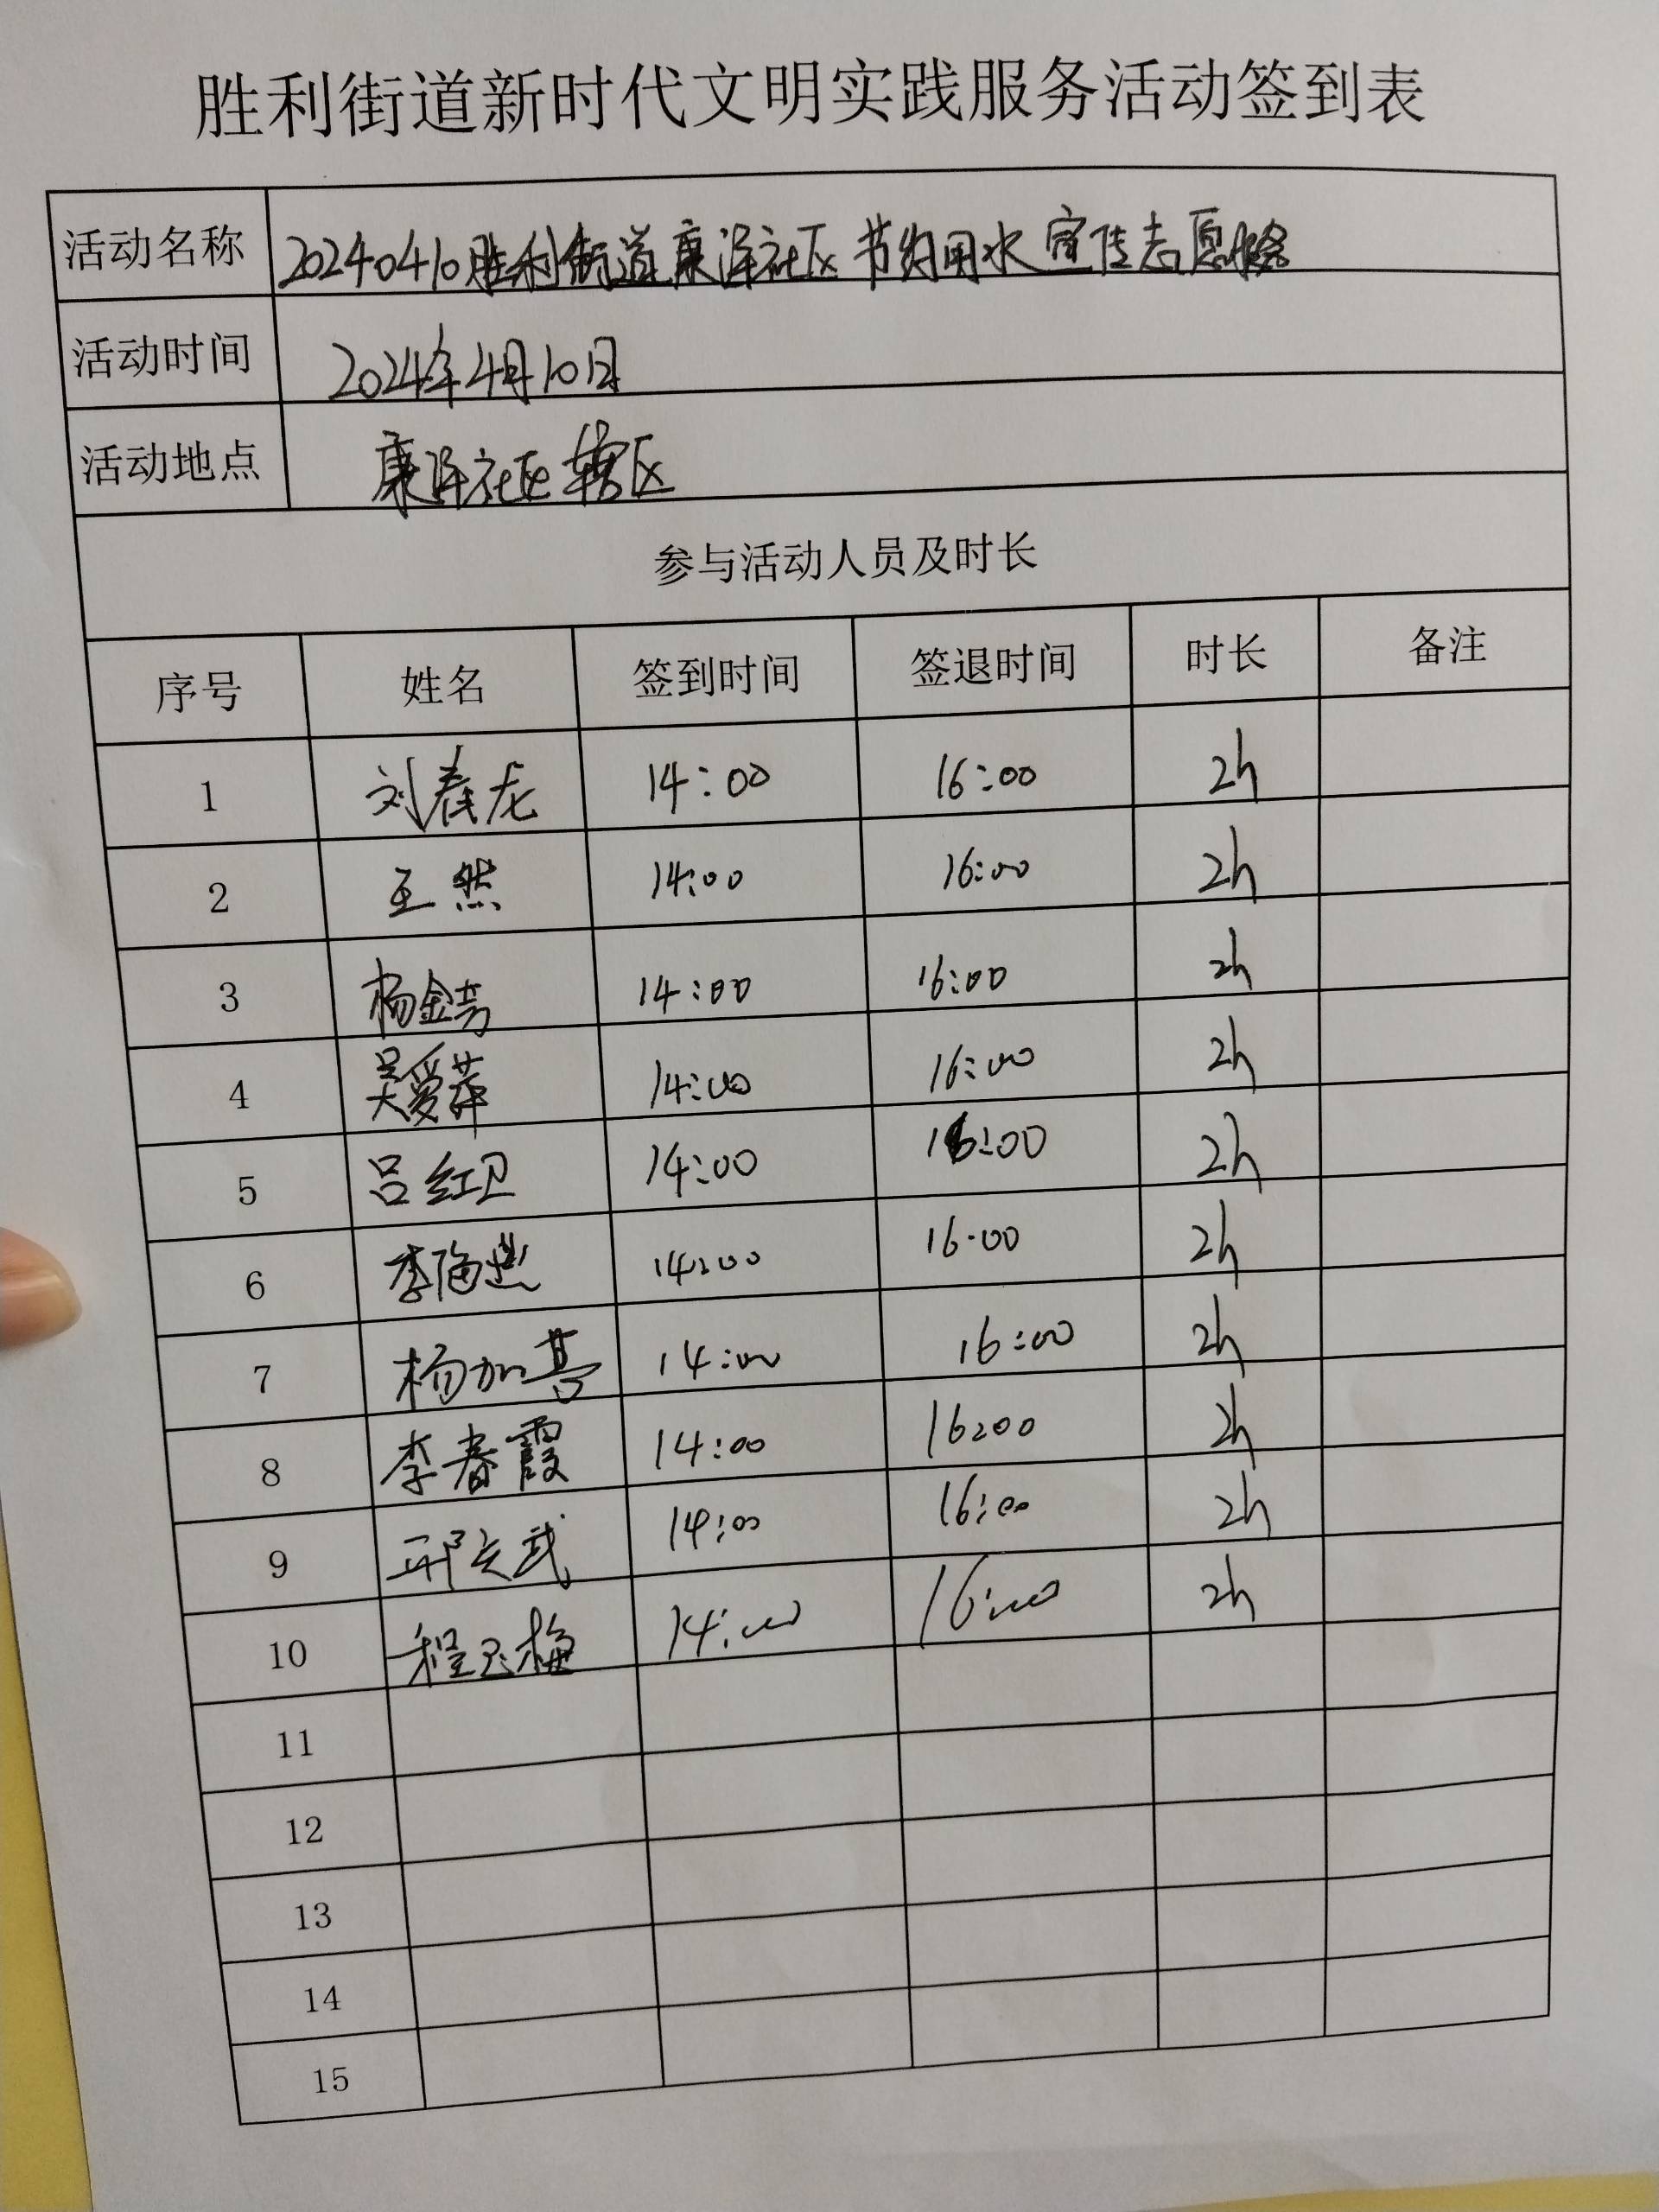 胜利街道新时代文明实践服务活动签到表
活动名称 20240410胜利街道康泽社区节约用水宣传志愿服务
活动时间 2024年4月10日
活动地点 康泽社区辖区
参与活动人员及时长
序号 姓名 签到时间 签退时间 时长 备注
1 刘春龙 14:00 16:00 2h
2 王然 14:00 16:00 2h
3 杨金芳 14:00 16:00 2h
4 吴爱萍 14:00 16:00 2h
5 吕红卫 14:00 16:00 2h
6 14:00 16:00 2h
7 杨加喜 14:00 16:00 2h
8 李春霞 14:00 16:00 2h
9 14:00 16:00 2h
10 程玉梅 14:00 16:00 2h
11
12
13
14
15